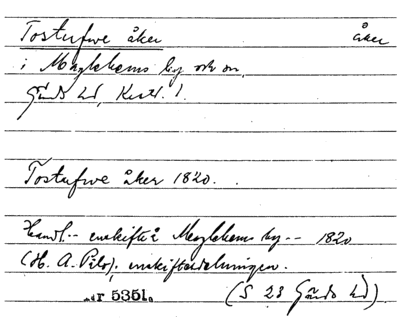 Tostufwe åker åker
i Maglehems by och sn,
Gärds hd, Krist. l.
Tostufwe åker 1820.
Handl.-- enskifte å Maglehems by-- 1820
(H. A. Pihl), enskiftesdelningen.
nr 5351. (S 23 Gärds hd)